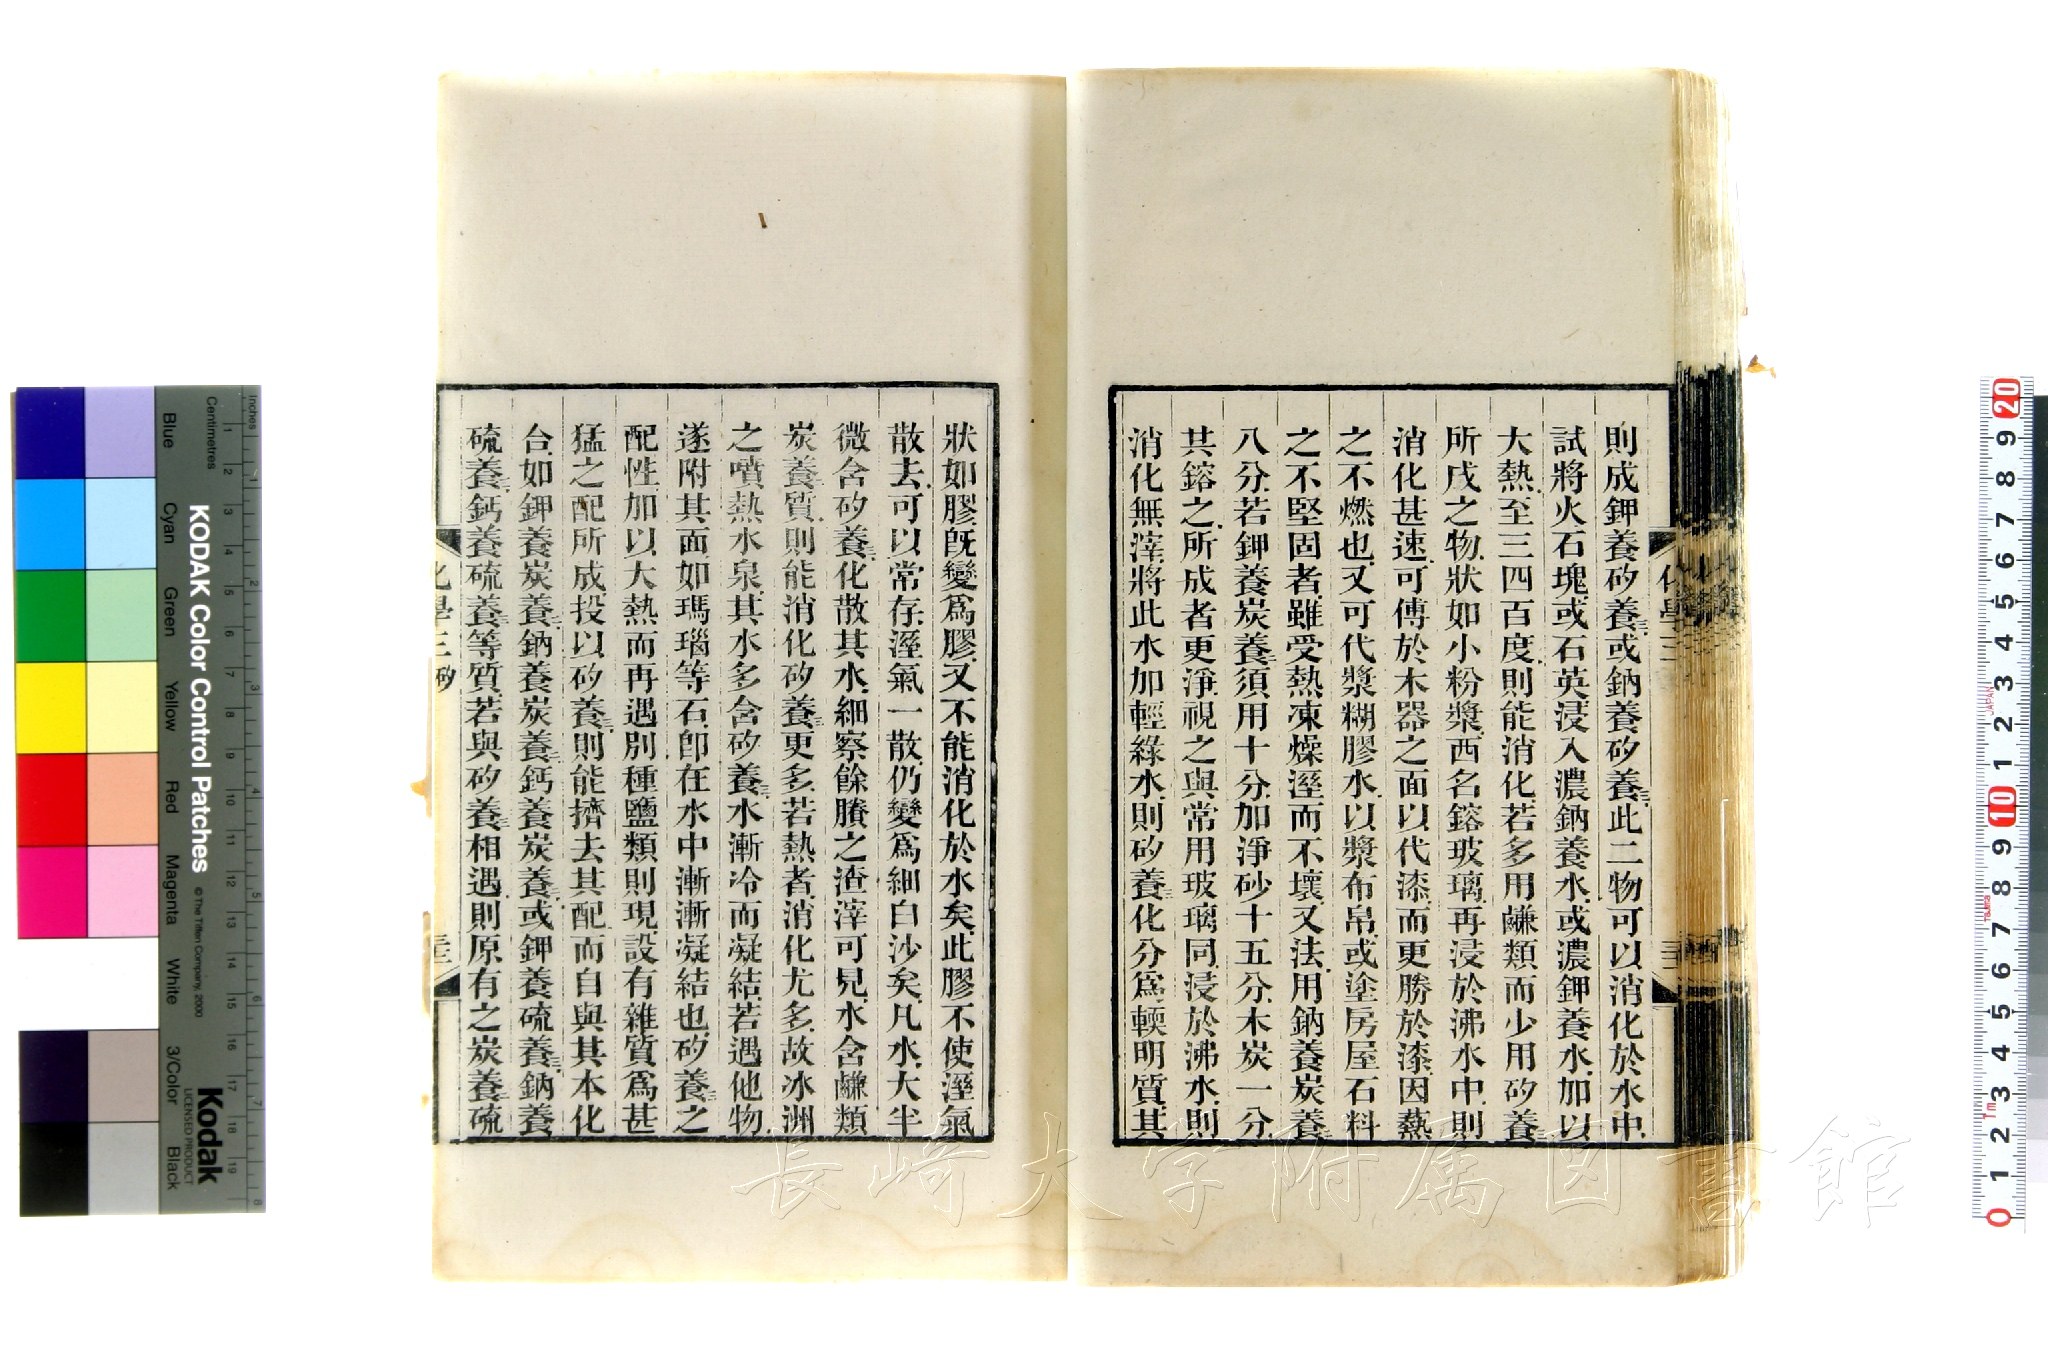 則成鉀養矽養三或鈉養矽養三此二物可以消化於水中
試將火石塊或石英浸入濃鈉養水或濃鉀養水加以
大熱至三四百度則能消化若多用鹻類而少用矽養三
所成之物狀如小粉漿西名鎔玻璃再浸於沸水中則
消化甚速可傅於木器之面以代漆而更勝於漆因爇
之不燃也又可代漿糊膠水以漿布帛或塗房屋石料
之不堅固者雖受熱凍燥溼而不壞又法用鈉養炭養二
八分若鉀養炭養二須用十分加淨砂十五分木炭一分
其鎔之所成者更淨視之與常用玻璃同浸於沸水則
消化無滓將此水加輕綠水則矽養三化分爲輭明質其
狀如膠旣變爲膠又不能消化於水矣此膠不使溼氣
散去可以常存溼氣一散仍變爲細白沙矣凡水大半
微含矽養三化散其水細察餘賸之渣滓可見水含鹻類
炭養二質則能消化矽養三更多若熱者消化尤多故冰洲
之噴熱水泉其水多含矽養三水漸冷而凝結若遇他物
遂附其面如瑪瑙等石卽在水中漸漸凝結也矽養三之
配性加以大熱而再遇別種鹽類則現設有雜質爲甚
猛之配所成投以矽養三則能擠去其配而自與其本化
合如鉀養炭養二鈉養炭養二鈣養炭養二或鉀養硫養三鈉養
硫養三鈣養硫養三等質若與矽養三相遇則原有之炭養二硫
化學三 矽
長崎大学附属図書館
KODAK Color Control Patches
© The Tiffen Company, 2000
Kodak
LICENSED PRODUCT
Inches
Centimetres
Blue
Cyan
Green
Yellow
Red
Magenta
White
3/Color
Black